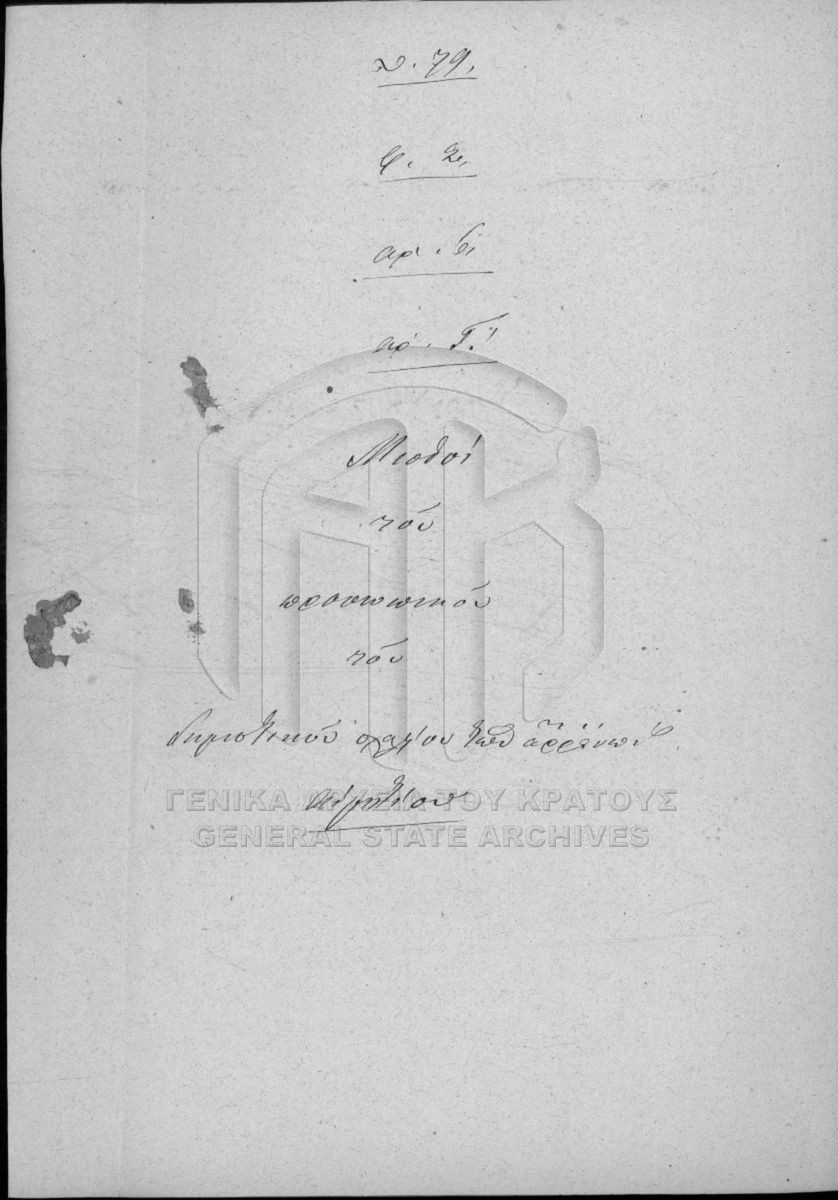 79.
αρ. 6.
αρ. Γ.'
Μισθοί
τοῦ
προσωπικοῦ
τοῦ
δημοτικοῦ σχολείου τῶν ἀρρένων
Αἰγίου
ΓΕΝΙΚΑ ΑΡΧΕΙΑ ΤΟΥ ΚΡΑΤΟΥΣ
GENERAL STATE ARCHIVES